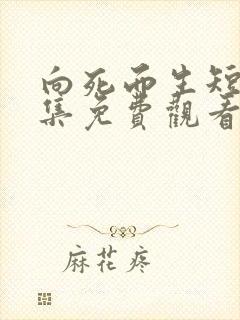 向死而生短
集免費觀看
麻花疼